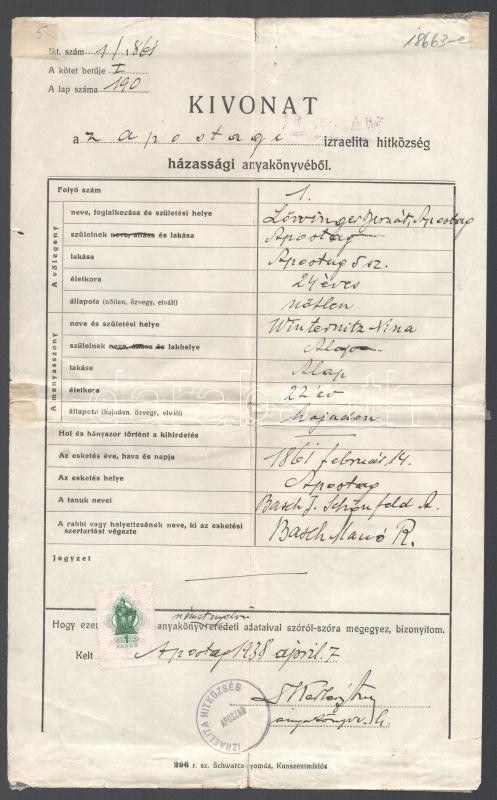 5.
18663-e
Ikt. szám 1/1861
A kötet betűje I.
A lap száma 190
KIVONAT
a z apostagi izraelita hitközség
házassági anyakönyvéből.
Folyó szám 1.
A vőlegény
neve, foglalkozása és születési helye Lövinger Bernát, Apostag
szüleinek neve, állása és lakása Apostag
lakása Apostag 5 sz.
életkora 24 éves
állapota (nőtlen, özvegy, elvált) nőtlen
A menyasszony
neve és születési helye Winternitz Nina
szüleinek neve, állása és lakhelye Alap
lakása Alap
életkora 22 év
állapota (hajadon, özvegy, elvált) hajadon
Hol és hányszor történt a kihirdetés
Az esketés éve, hava és napja 1861 február 14.
Az esketés helye Apostag
A tanuk nevei Basch J. Schönfeld A.
A rabbi vagy helyettesének neve, ki az esketési
szertartást végezte Basch Manó R.
Jegyzet
németnyelvű
Hogy ezen anyakönyv eredeti adataival szóról-szóra megegyez, bizonyítom.
Kelt Apostag 1938 április 7
anyakönyv.
IZRAELITA HITKÖZSÉG
APOSTAG
1
PENGŐ
296 r. sz. Schwarcz-nyomda, Kunszentmiklós
darabanth